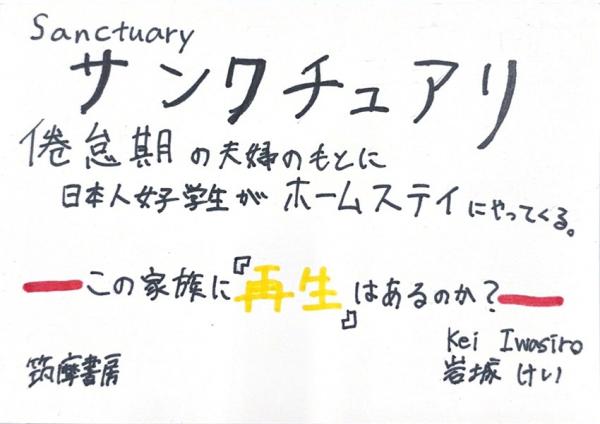 Sanctuary
サンクチュアリ
倦怠期の夫婦のもとに
日本人女子学生がホームステイにやってくる。
この家族に『再生』はあるのか?
Kei Iwasiro
筑摩書房
岩塚けい